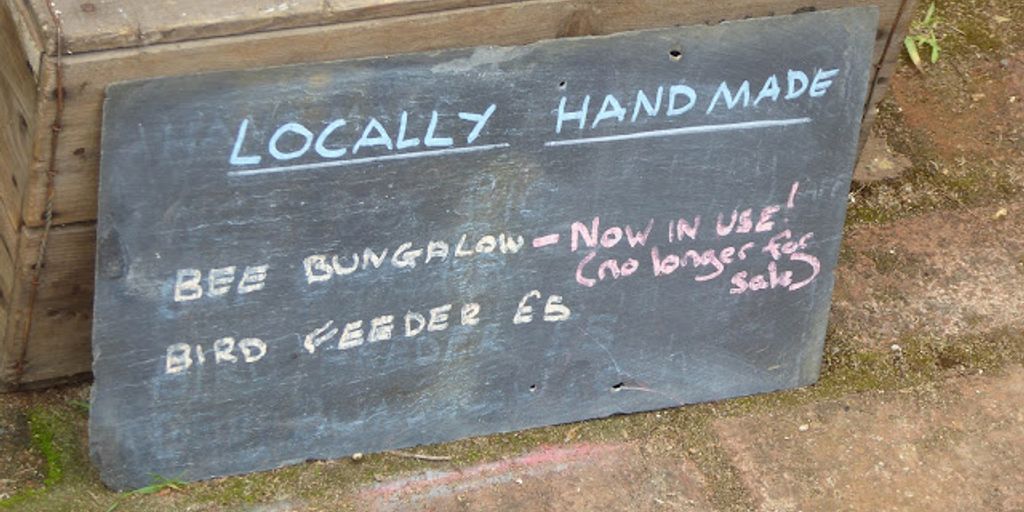 LOCALLY HANDMADE
BEE BUNGALOW - NOW IN USE!
(no longer for
sale)
BIRD FEEDER £5